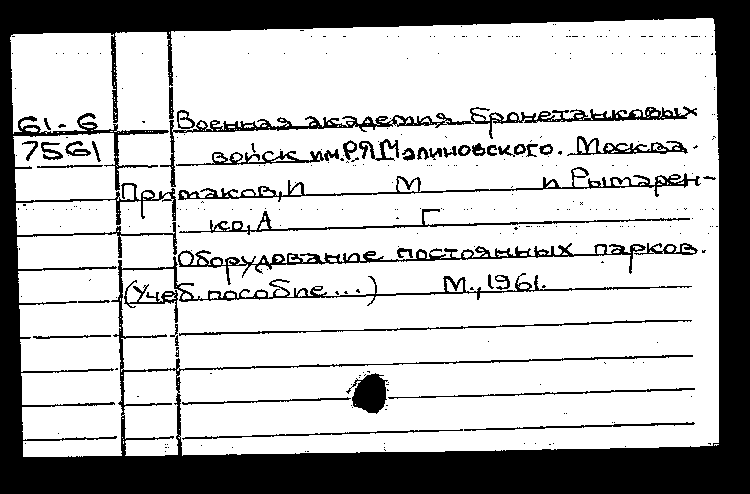 61-6 Военная академия бронетанковых
7561 войск им.Р.Я.Малиновского. Москва.
Примаков, И М и Рытарен-
ко, А Г
Оборудование постоянных парков.
(Учеб.пособие...) М., 1961.